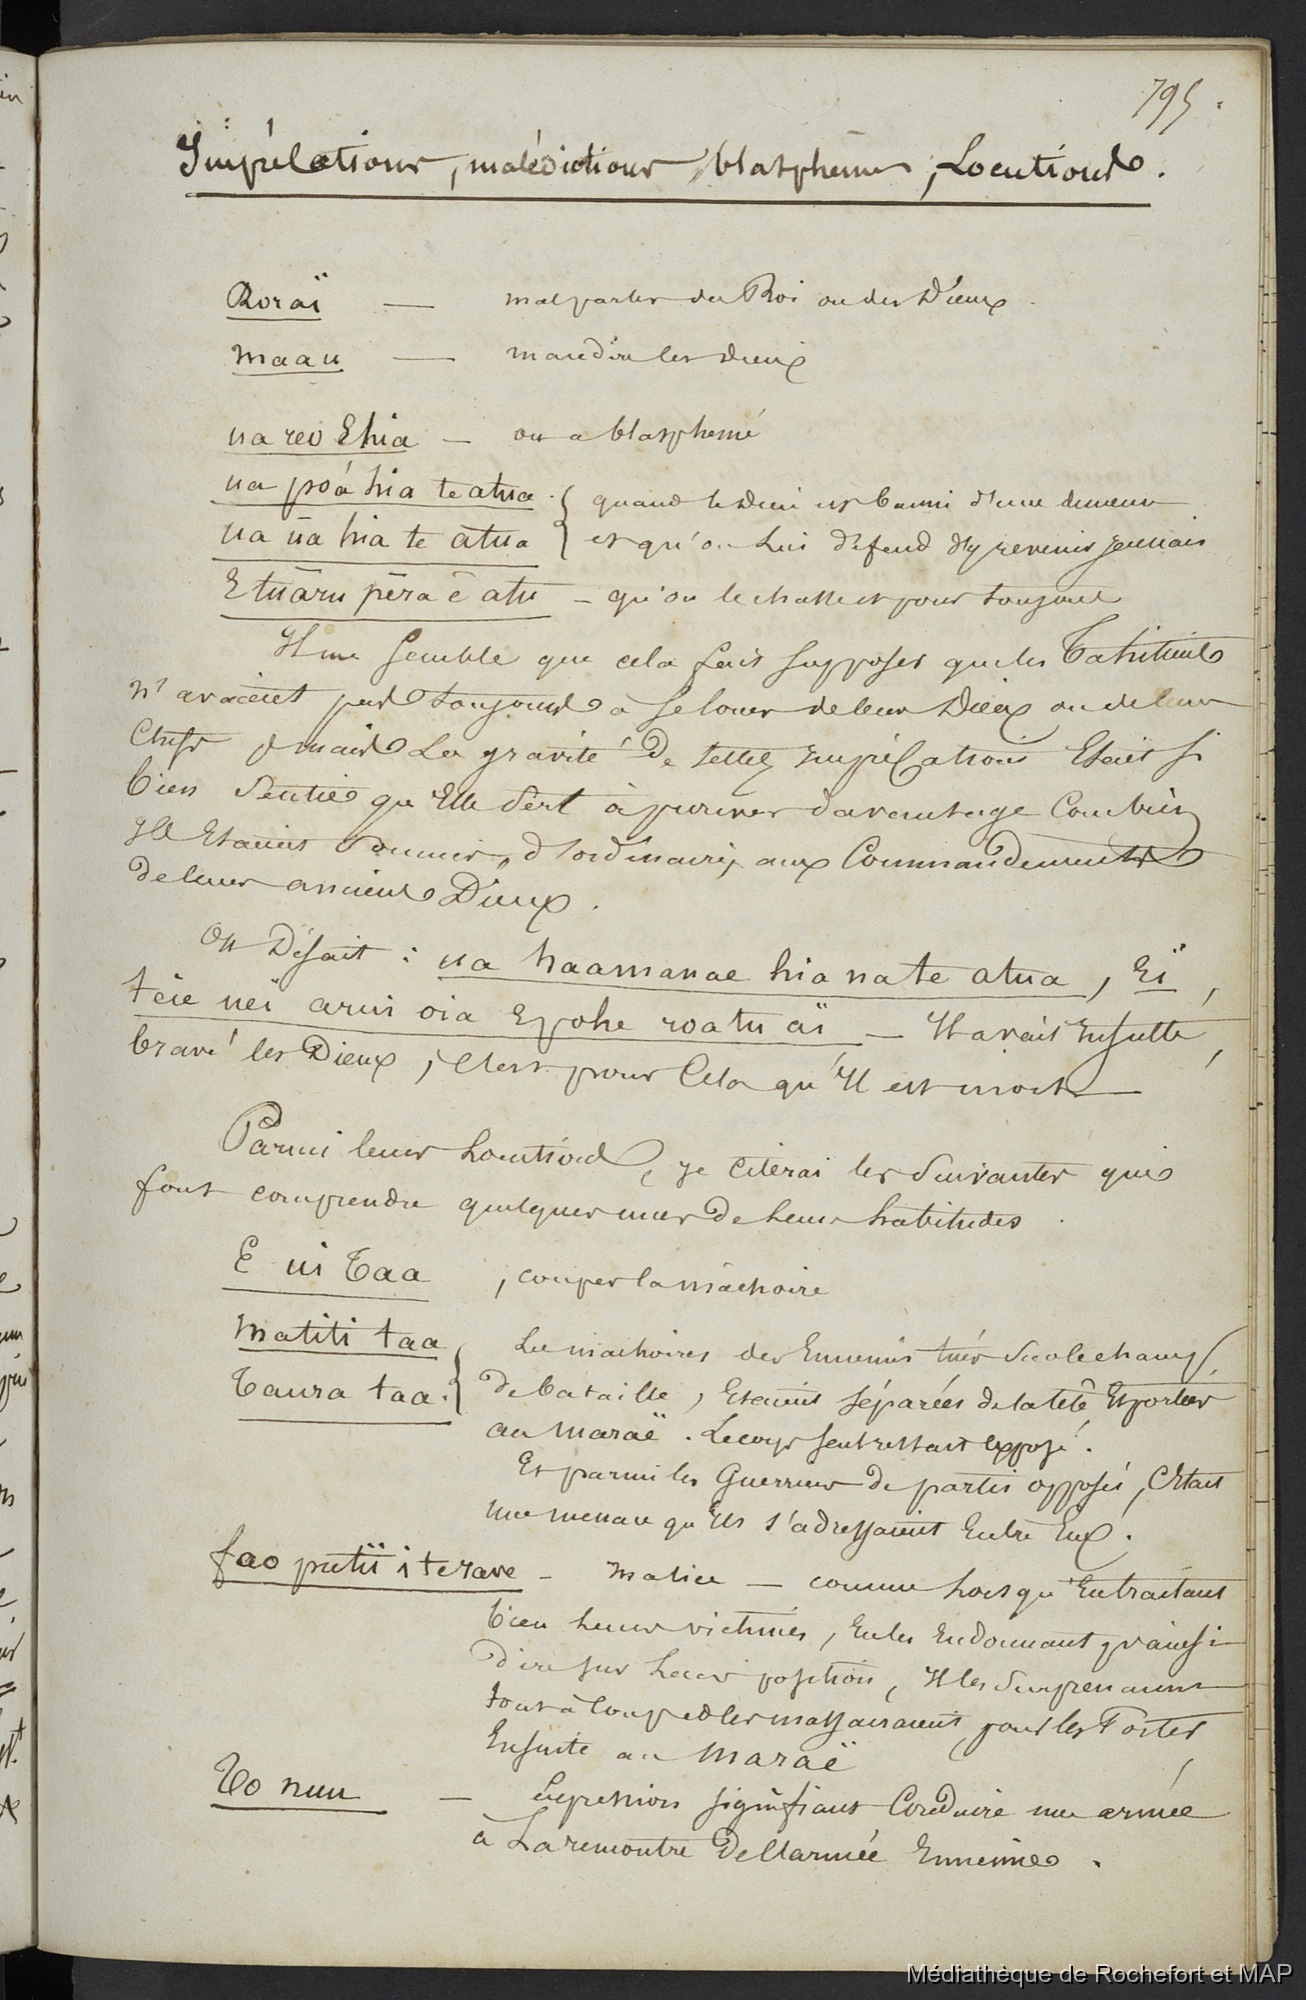 795.
Imprécations, malédictions, blasphèmes, Locutions.
Roraï — mal parler du Roi ou des Dieux.
maau — maudire les dieux
ua reo Ehia — on a blasphemé
ua poá hia te atua. { quand le Dieu est banni d'une demeure
ua ūa hia te atua } et qu'on lui défend d'y revenir jamais
E tuāru pēra ē atu — qu'on le chasse et pour toujours
Il me semble que cela fait supposer que les Tahitiens
n'avaient pas toujours à se louer de leurs Dieux ou de leurs
Chefs ; mais la gravité de telles imprécations Etait si
bien Sentie qu'Elle sert à prouver davantage Combien
Ils Etaient Soumis, d'ordinaire, aux Commandements
de leurs anciens Dieux.
On Disait : ua haamanae hia na te atua, Eï,
teie nei arui oia E pohe roatu aï — Il avait Insulté,
bravé les Dieux, C'est pour Cela qu'Il est mort —
Parmi leurs Locutions, je citerai les Suivantes qui
font comprendre quelques unes de Leurs habitudes.
E ui Taa , couper la machoire
matiti taa Les machoires des Ennemis tués sur le champ
Taura taa. } de bataille, Etaient séparées de la tête Et portées
au Maraë. Le corps seul restait exposé.
Et parmi les Guerriers de partis opposés, C'Etait
une menace qu'Ils s'adressaient Entre Eux.
fao putii i te rave — Malice — comme Lorsqu'En traitant
bien Leurs victimes, En les Endormant pr ainsi
dire sur Leur position, Ils les Surprenaient
tout à Coup et les massacraient, pour les Porter
Ensuite au Maraë
To nuu — Expression signifiant Conduire une armée
à La rencontre De l'armée Ennemie.
Médiathèque de Rochefort et MAP